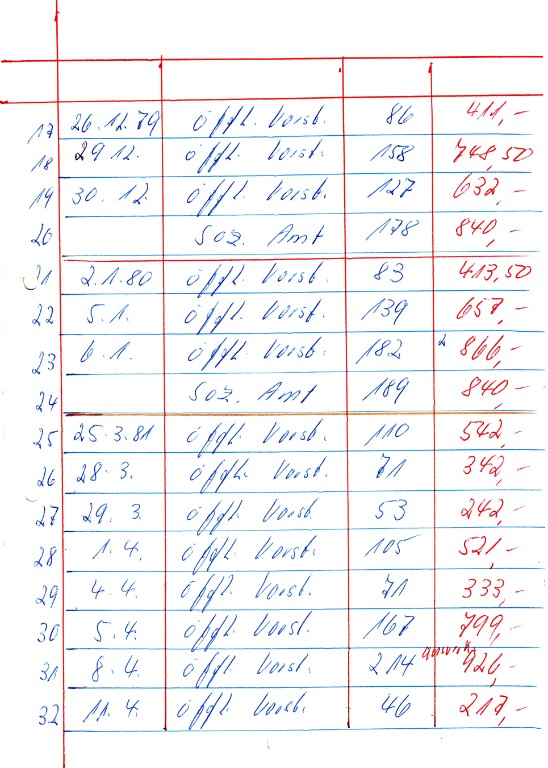 17 26.12.79 öffl. Vorst. 86 411,-
18 29.12. öffl. Vorst. 158 748,50
19 30.12. öffl. Vorst. 127 632,-
20 Soz. Amt 178 840,-
21 2.1.80 öffl. Vorst. 83 413,50
22 5.1. öffl. Vorst. 139 657,-
23 6.1. öffl. Vorst. 182 2 866,-
24 Soz. Amt 189 840,-
25 25.3.81 öffl. Vorst. 110 542,-
26 28.3. öffl. Vorst. 71 342,-
27 29.3. öffl. Vorst. 53 242,-
28 1.4. öffl. Vorst. 105 521,-
29 4.4. öffl. Vorst. 71 333,-
30 5.4. öffl. Vorst. 167 799,-
31 8.4. öffl. Vorst. 214 926,-
32 11.4. öffl. Vorst. 46 217,-